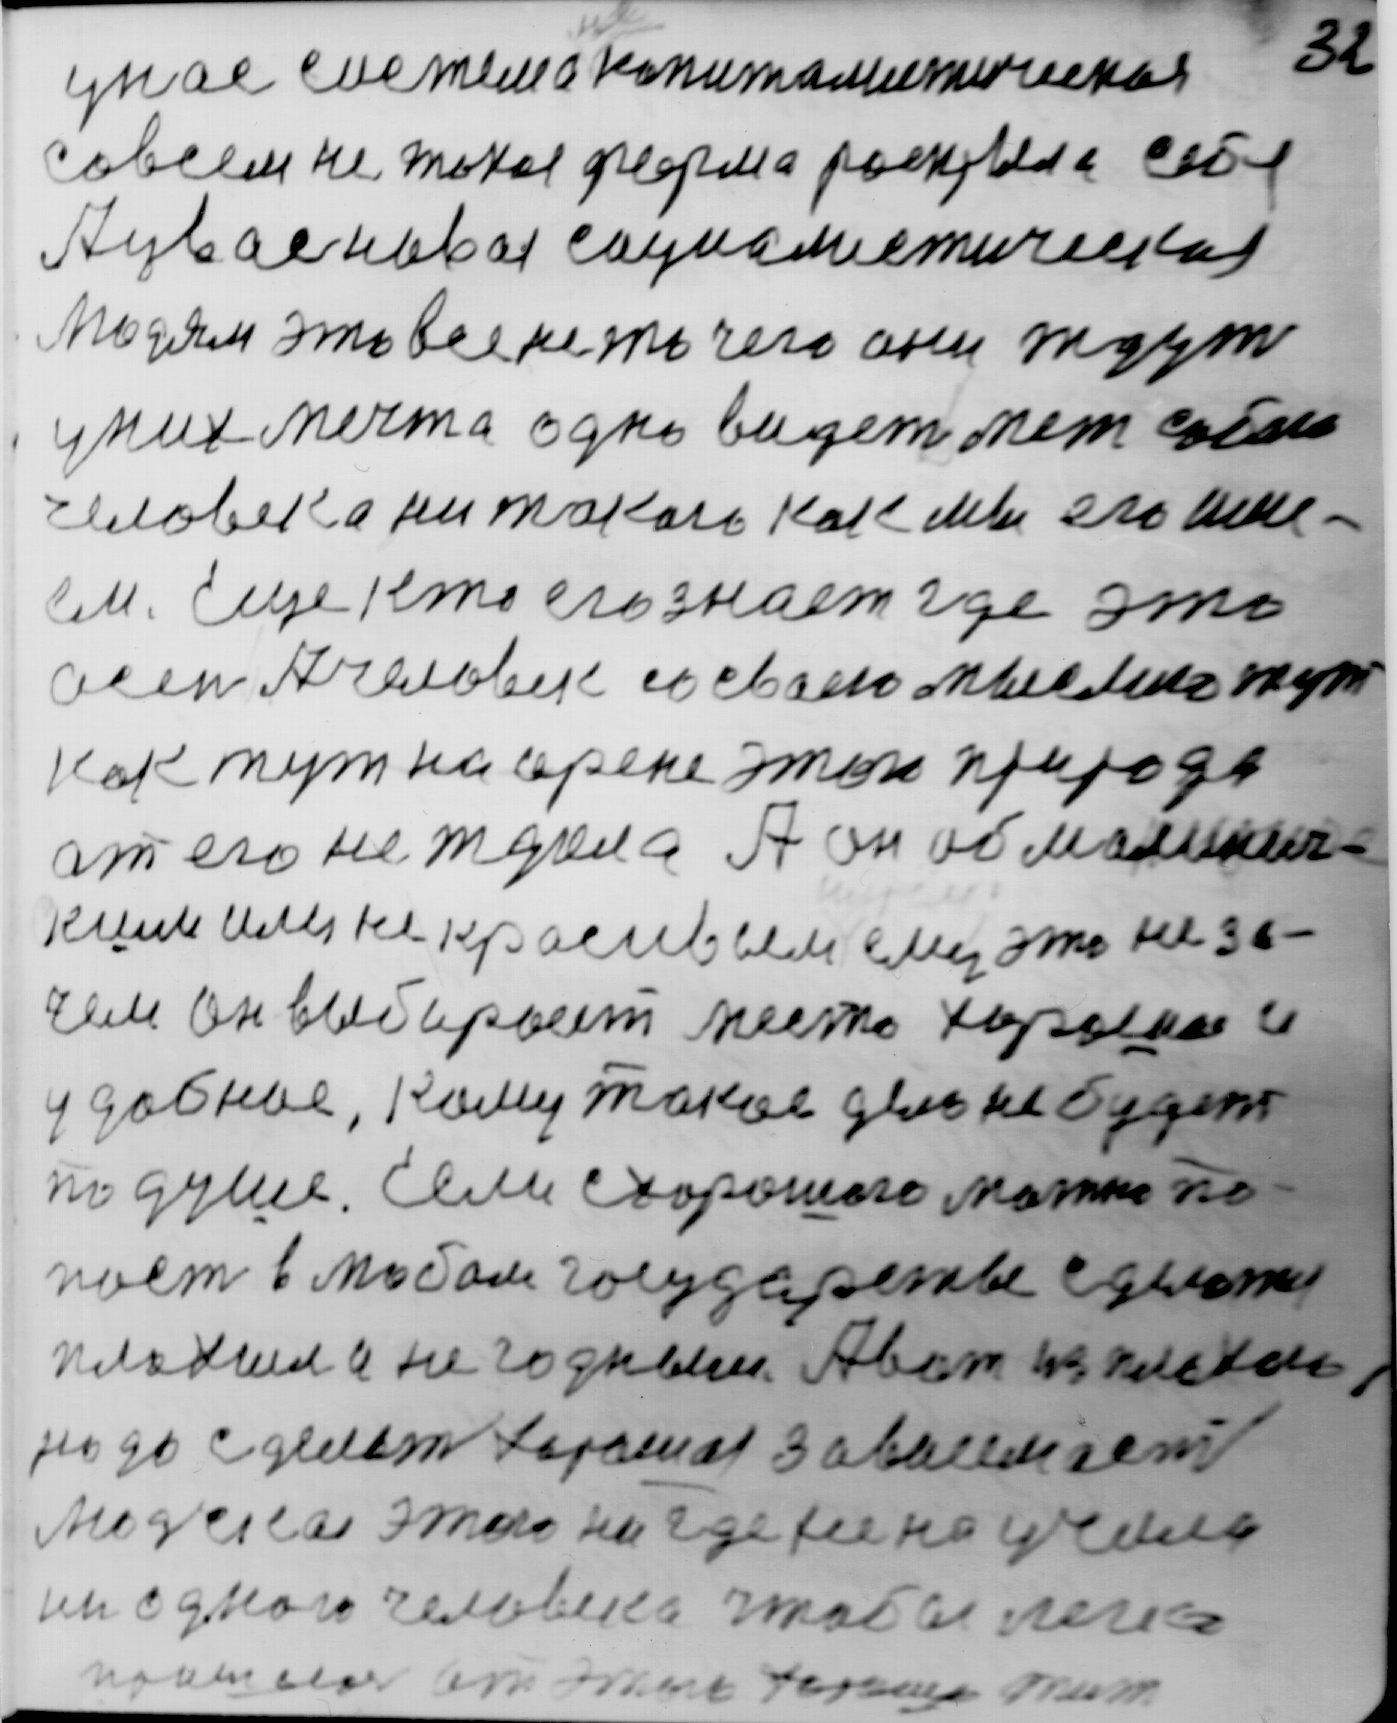 32
у нас система капиталистическая
совсем не такая форма раскрыла себя
А у вас новая социалистическая
Людям это все не то чего они ждут
у них мечта одно видет мет собою
человека ни такого как мы его име-
ем. Еще кто его знает где это
осен А человек со своею мыслию тут
как тут на арене этой природа
от его не ждала А он об
ким или не красивыем ему это не за-
чем он выбирает место хорошое и
удобное, кому такое дело не будет
по душе. Если схорошого можна по-
паст в любом государстве сделатся
плохим и не годными. А вот из плохого,
надо сделат хорошая зависемост
Людская этого ни где не научила
ни одного человека чтобы легко
от этого хорошо жит